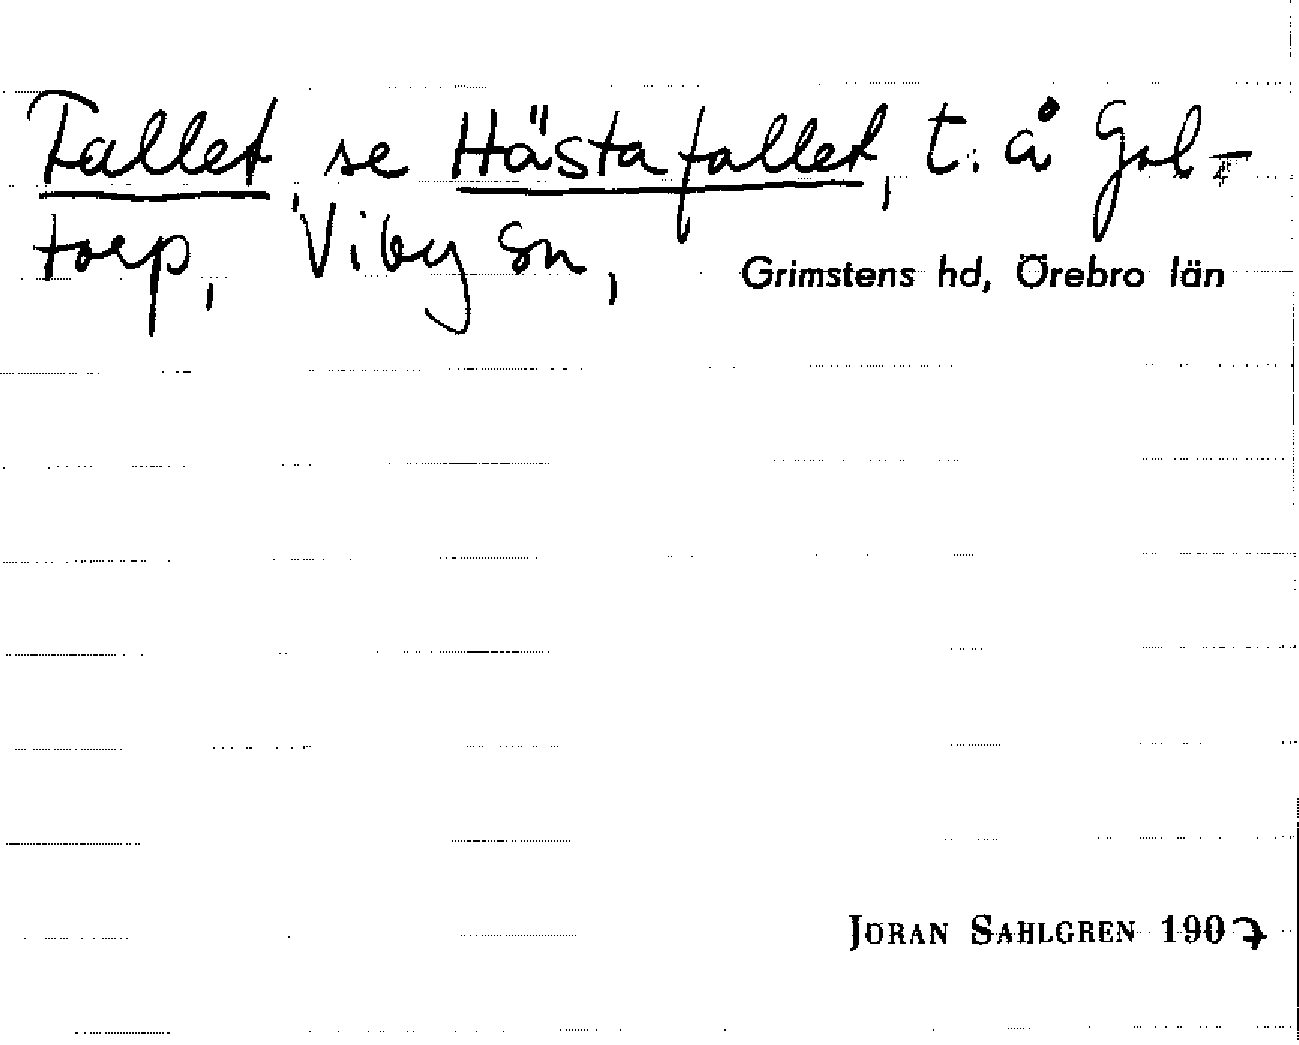 Fallet, se Hästafallet, t. å Gol-
torp, Viby sn, Grimstens hd, Örebro län
JORAN SAHLGREN 1907